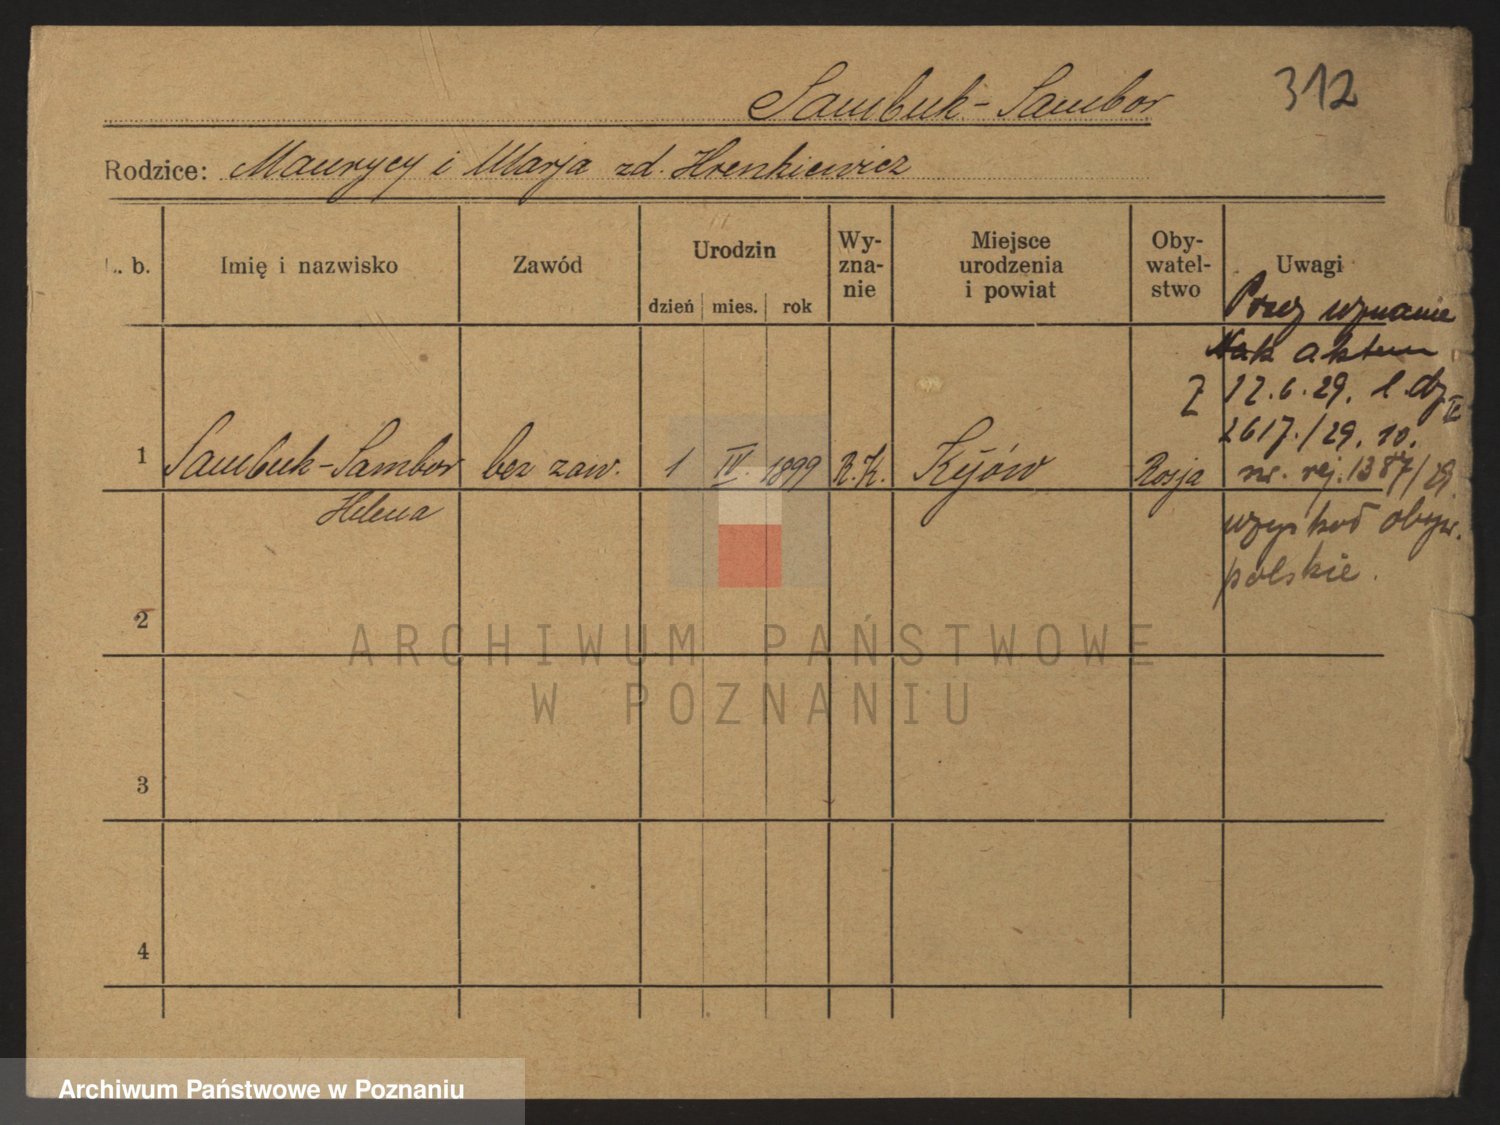 Sambuk-Sambor 312
Rodzice: Maurycy i Marja zd. Hrenkiewicz
L. b. Imię i nazwisko Zawód Urodzin dzień mies. rok Wy-zna-nie Miejsce urodzenia i powiat Oby-watel-stwo Uwagi
Przez uznanie
aktem
z 17.6.29. l. dz.
2617./29. 10.
1 Sambuk-Sambor bez zaw. 1 IV. 1899 R.K. Kijów Rosja nr. rej. 1387/29.
Helena
obyw.
polskie.
2
ARCHIWUM PAŃSTWOWE
W POZNANIU
3
4
Archiwum Państwowe w Poznaniu